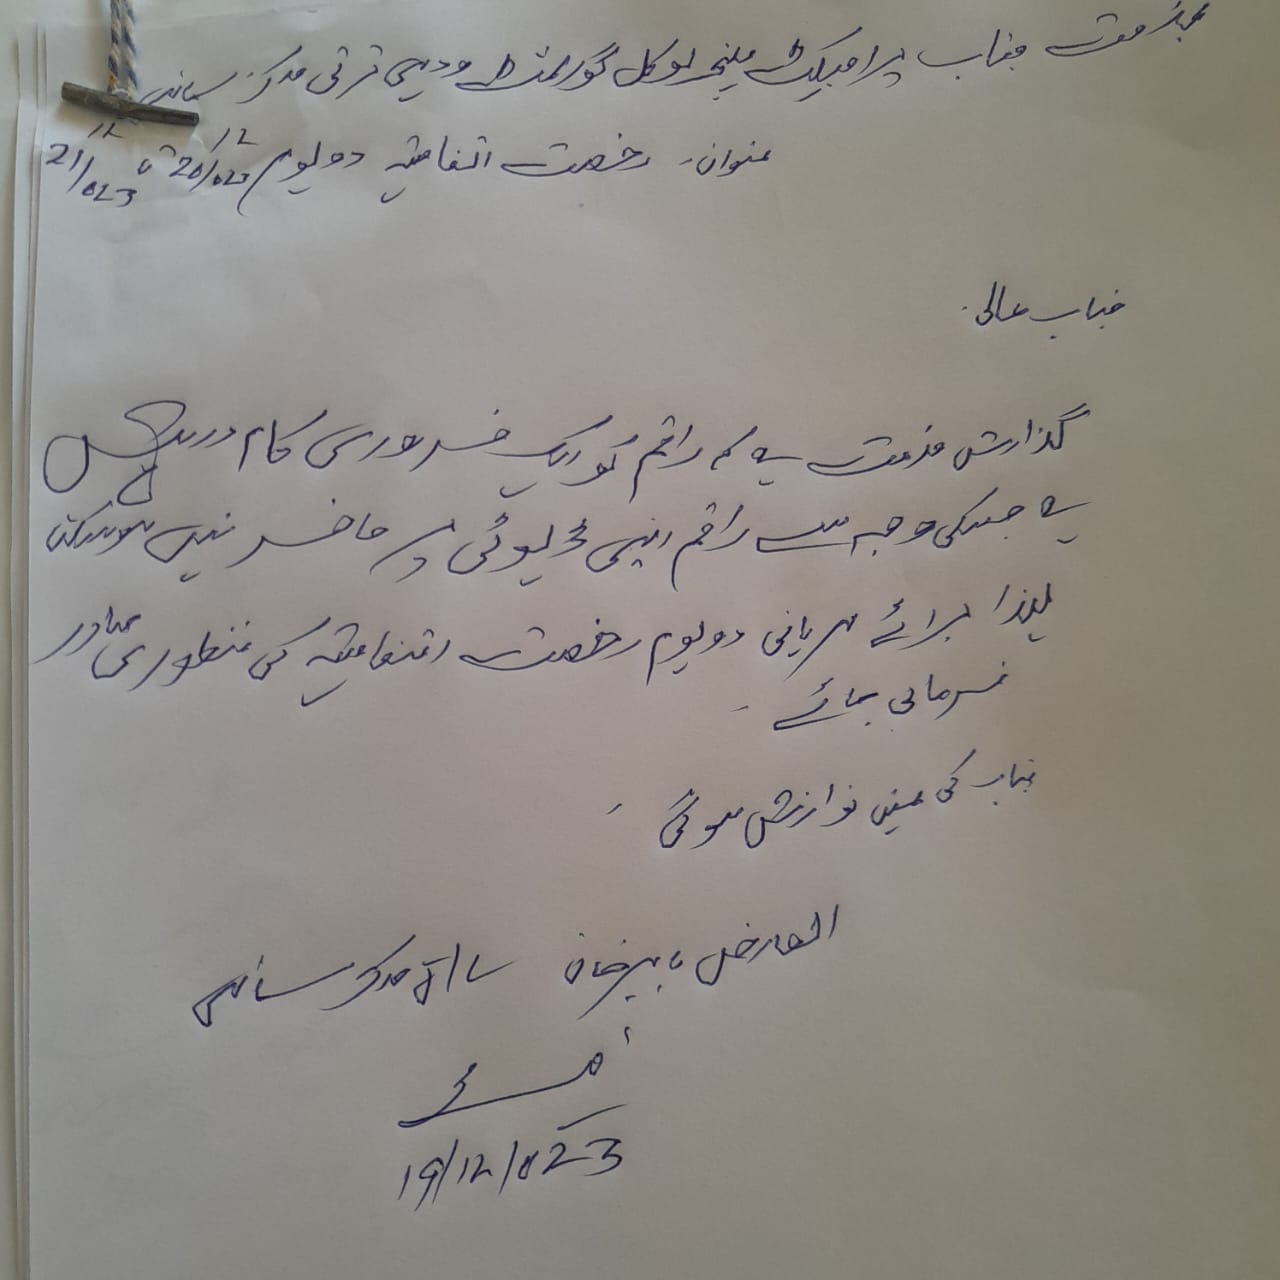 بخدمت جناب پراجیکٹ مینجر لوکل گورنمنٹ و دیہی ترقی مرکز
عنوان۔ رخصت اتفاقیہ دو یوم 20/12/023 تا 21/12/023
جناب عالی۔
گذارش خدمت ہے کہ راقم کو ایک ضروری کام درپیش
ہے جسکی وجہ سے راقم اپنی ڈیوٹی پر حاضر نہیں ہو سکتا
لہذا برائے مہربانی دو یوم رخصت اتفاقیہ کی منظوری صادر
فرمائی جائے۔
جناب کی عین نوازش ہوگی۔
العارض بابر خان مرکز
19/12/023